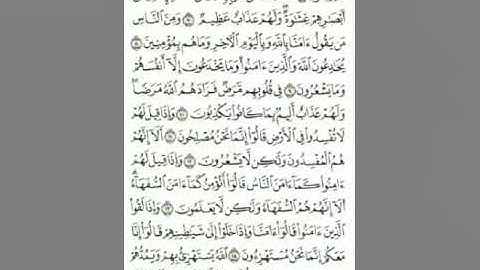 أَبْصَٰرِهِمْ غِشَٰوَةٌ وَلَهُمْ عَذَابٌ عَظِيمٌ ۝٧ وَمِنَ ٱلنَّاسِ
مَن يَقُولُ ءَامَنَّا بِٱللَّهِ وَبِٱلْيَوْمِ ٱلْءَاخِرِ وَمَا هُم بِمُؤْمِنِينَ ۝٨
يُخَٰدِعُونَ ٱللَّهَ وَٱلَّذِينَ ءَامَنُوا۟ وَمَا يَخْدَعُونَ إِلَّآ أَنفُسَهُمْ
وَمَا يَشْعُرُونَ ۝٩ فِى قُلُوبِهِم مَّرَضٌ فَزَادَهُمُ ٱللَّهُ مَرَضًا
وَلَهُمْ عَذَابٌ أَلِيمٌۢ بِمَا كَانُوا۟ يَكْذِبُونَ ۝١٠ وَإِذَا قِيلَ لَهُمْ
لَا تُفْسِدُوا۟ فِى ٱلْأَرْضِ قَالُوٓا۟ إِنَّمَا نَحْنُ مُصْلِحُونَ ۝١١ أَلَآ إِنَّهُمْ
هُمُ ٱلْمُفْسِدُونَ وَلَٰكِن لَّا يَشْعُرُونَ ۝١٢ وَإِذَا قِيلَ لَهُمْ
ءَامِنُوا۟ كَمَآ ءَامَنَ ٱلنَّاسُ قَالُوٓا۟ أَنُؤْمِنُ كَمَآ ءَامَنَ ٱلسُّفَهَآءُ
أَلَآ إِنَّهُمْ هُمُ ٱلسُّفَهَآءُ وَلَٰكِن لَّا يَعْلَمُونَ ۝١٣ وَإِذَا لَقُوا۟
ٱلَّذِينَ ءَامَنُوا۟ قَالُوٓا۟ ءَامَنَّا وَإِذَا خَلَوْا۟ إِلَىٰ شَيَٰطِينِهِمْ قَالُوٓا۟ إِنَّا
مَعَكُمْ إِنَّمَا نَحْنُ مُسْتَهْزِءُونَ ۝١٤ ٱللَّهُ يَسْتَهْزِئُ بِهِمْ وَيَمُدُّهُمْ